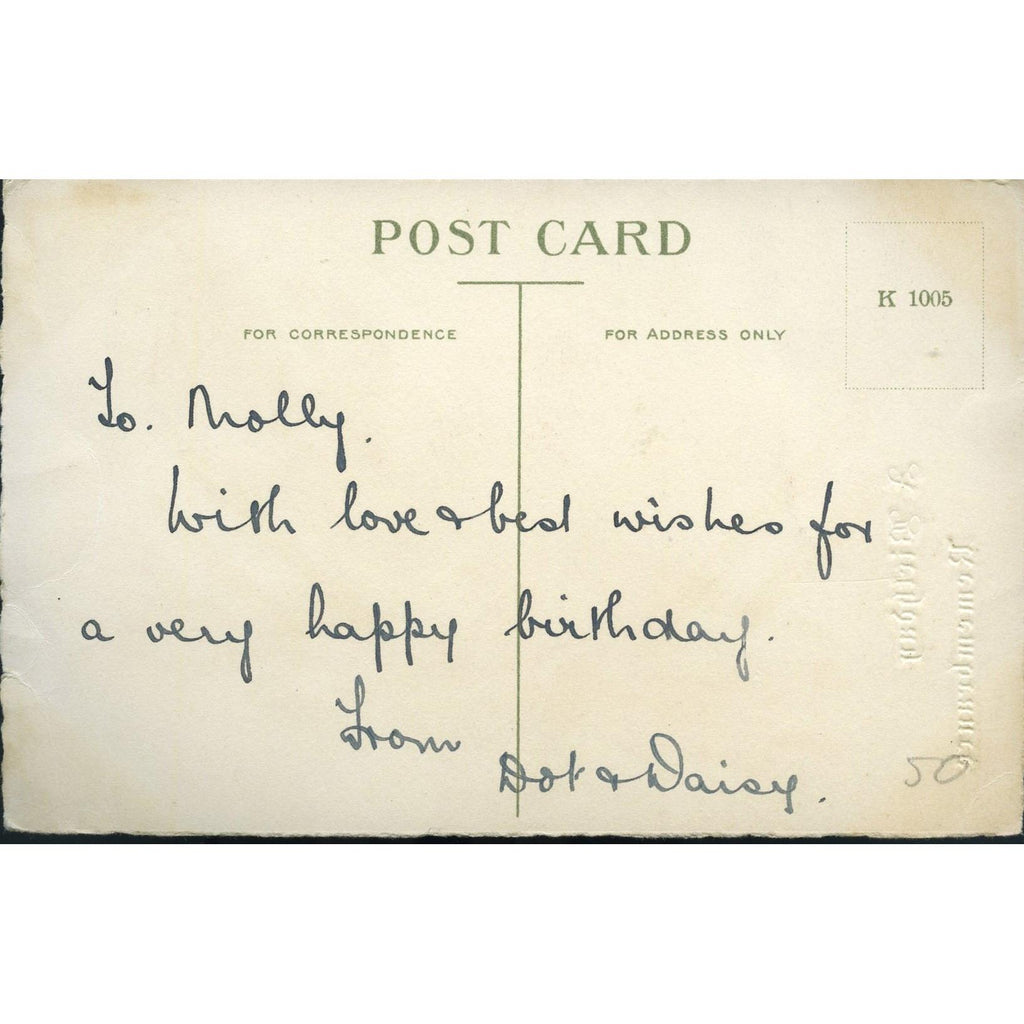 POST CARD
K 1005
FOR CORRESPONDENCE
FOR ADDRESS ONLY
To. Molly.
With love & best wishes for
a very happy birthday.
From
Dot & Daisy.
A Birthday
Remembrance
50